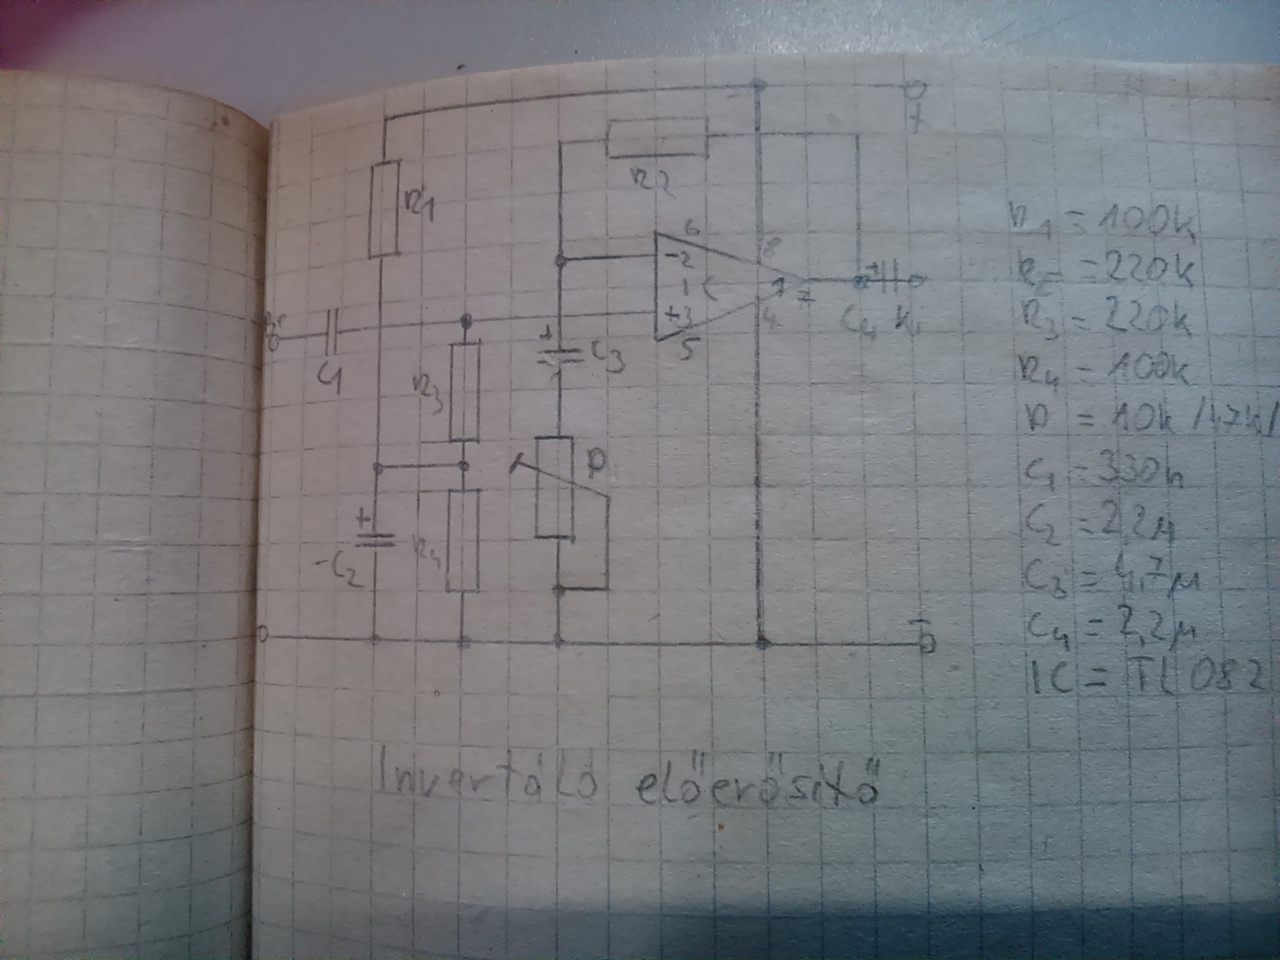 +
R1
R2
6
-2
8
IC
1
7
+3
4
5
C1
+
C3
+
C4 Ki
R3
P
+
-C2
R4
-
R1 = 100k
= 220k
R3 = 220k
R4 = 100k
P = 10k /47k/
C1 = 330n
C2 = 2,2µ
C3 = 4,7µ
C4 = 2,2µ
IC = TL 082
Invertáló előerősitő